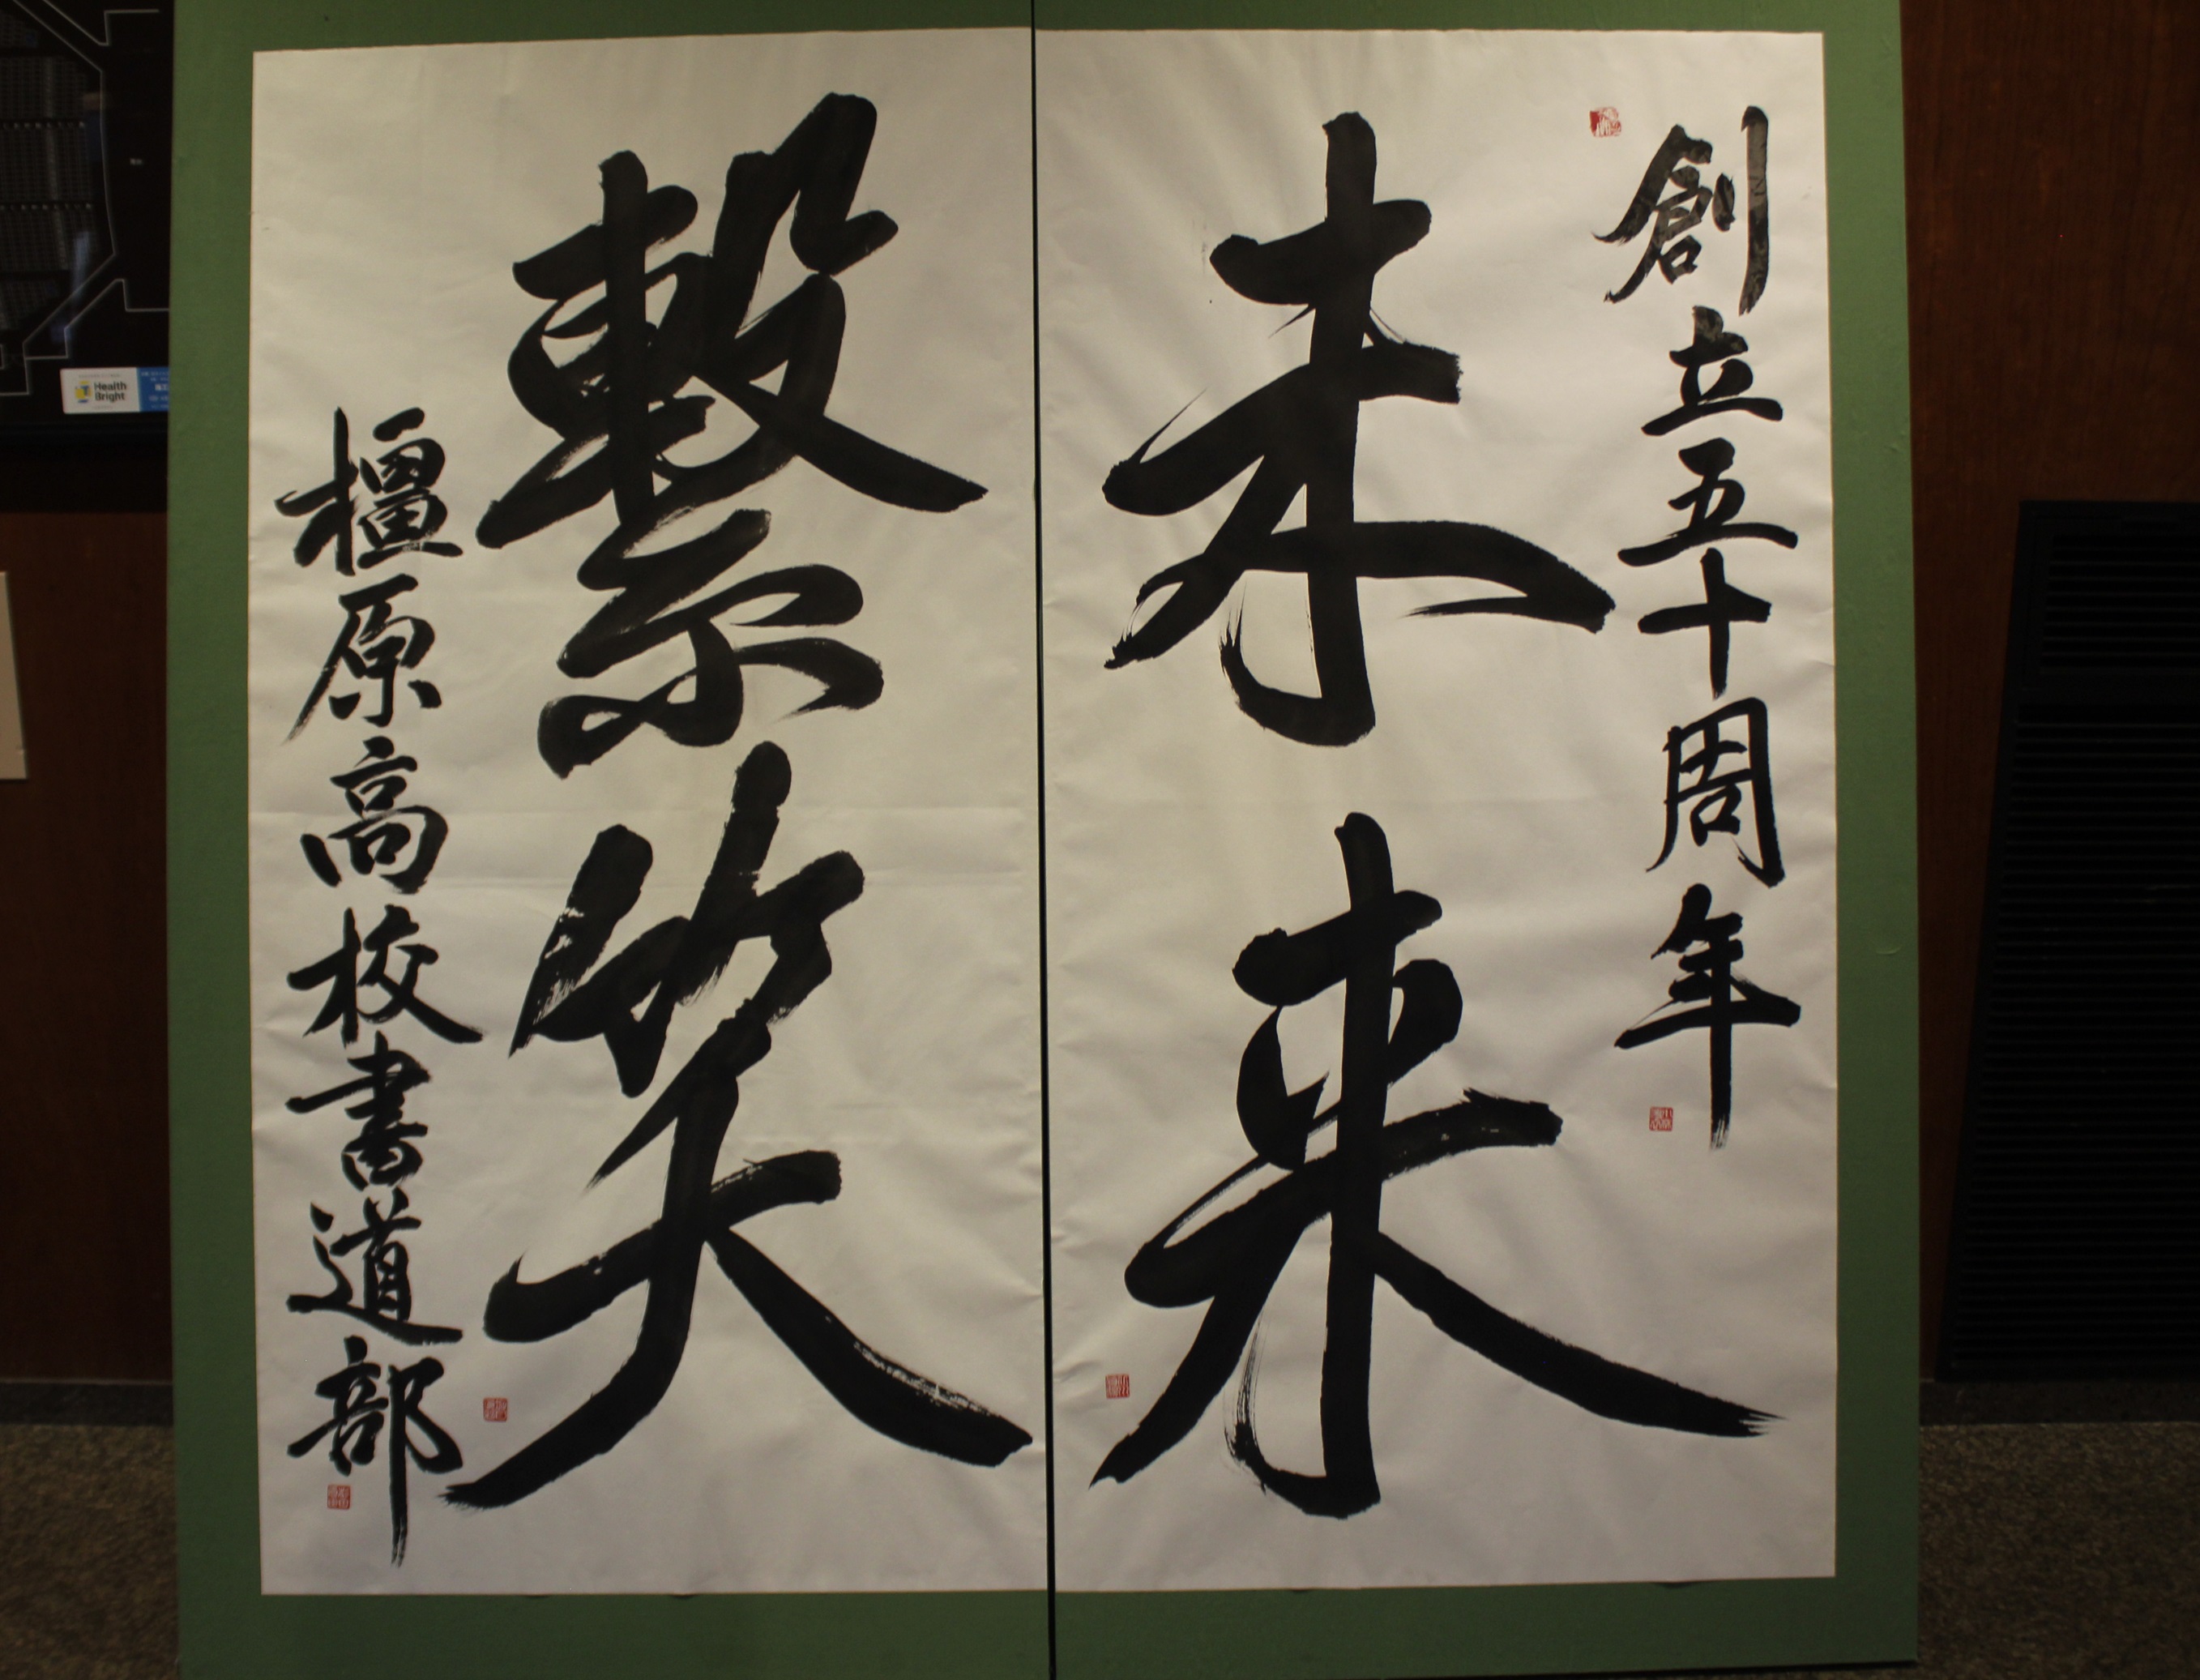 創立五十周年
未来
繋笑
橿原高校書道部
Health
Bright